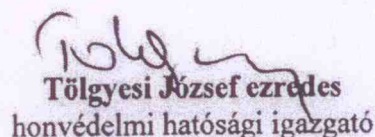 Tölgyesi József ezredes
honvédelmi hatósági igazgató